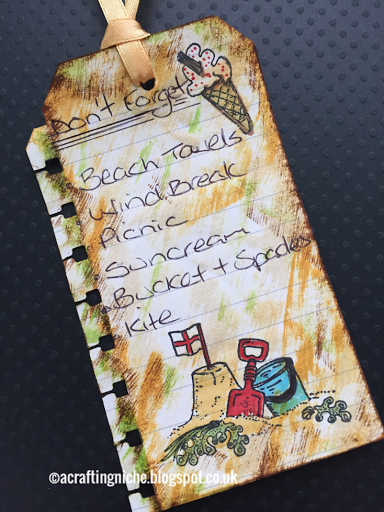 Don't Forget
Beach Towels
Wind Break
Picnic
Suncream
Bucket + Spades
Kite
©acraftingniche.blogspot.co.uk